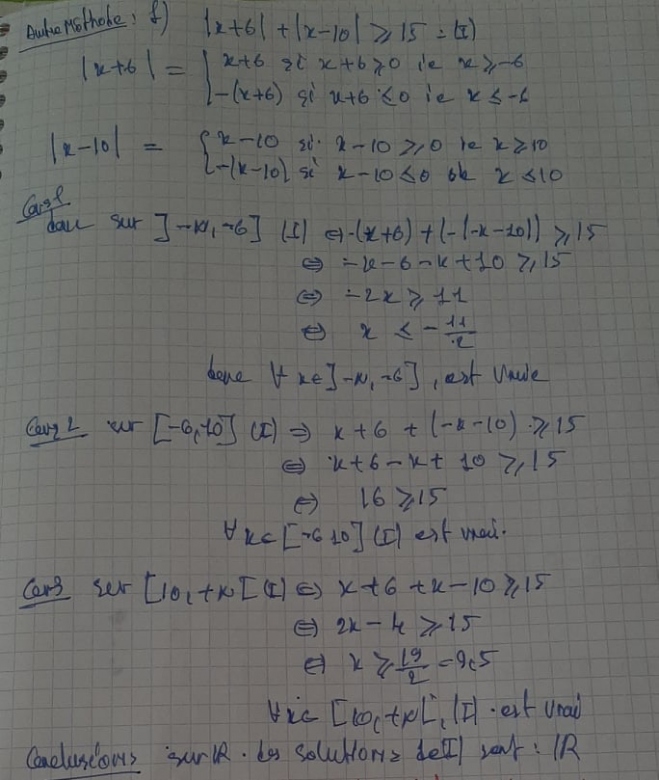 Autre Méthode : f) |x+6| + |x-10| ⩾ 15 : (I)
|x+6| = { x+6 si x+6 ⩾ 0 ie x ⩾ -6
-(x+6) si x+6 ⩽ 0 ie x ⩽ -6
|x-10| = { x-10 si x-10 ⩾ 0 ie x ⩾ 10
-(x-10) si x-10 ⩽ 0 x ⩽ 10
Cas1
sur ]-∞, -6] (I) ⇔ -(x+6) + (-(-x-10)) ⩾ 15
⇔ -x-6-x+10 ⩾ 15
⇔ -2x ⩾ 11
⇔ x ⩽ -11/2
donc ∀ x∈ ]-∞, -6], est Vraie
Cas 2 sur [-6, 10] (I) ⇒ x+6 + (-x-10) ⩾ 15
⇔ x+6-x+10 ⩾ 15
⇔ 16 ⩾ 15
∀x∈ [-6 10] (I) est vrai.
Cas3 sur [10, +∞[ (I) ⇔ x+6+x-10 ⩾ 15
⇔ 2x-4 ⩾ 15
⇔ x ⩾ 19/2 = 9,5
∀x∈ [10, +∞[, (I) est Vrai
Conclusions sur ℝ. les solutions de (I) sont : ℝ